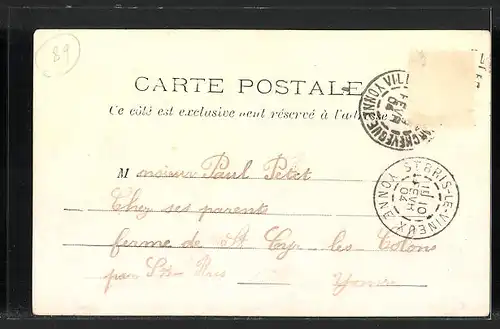 89
CARTE POSTALE
Ce côté est exclusivement réservé à l'adresse
VILL ARCHEVEQUE YONNE
FEVR
ST BRIS-LE-VINEUX YONNE
10
FEVR
04
Monsieur Paul Petit
Chez ses parents
ferme de St Cyr les Colons
par St Bris Yonne